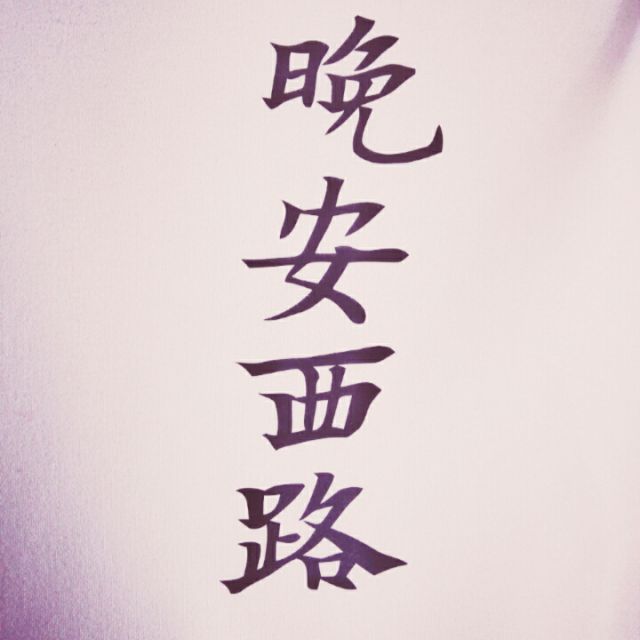 晚安西路